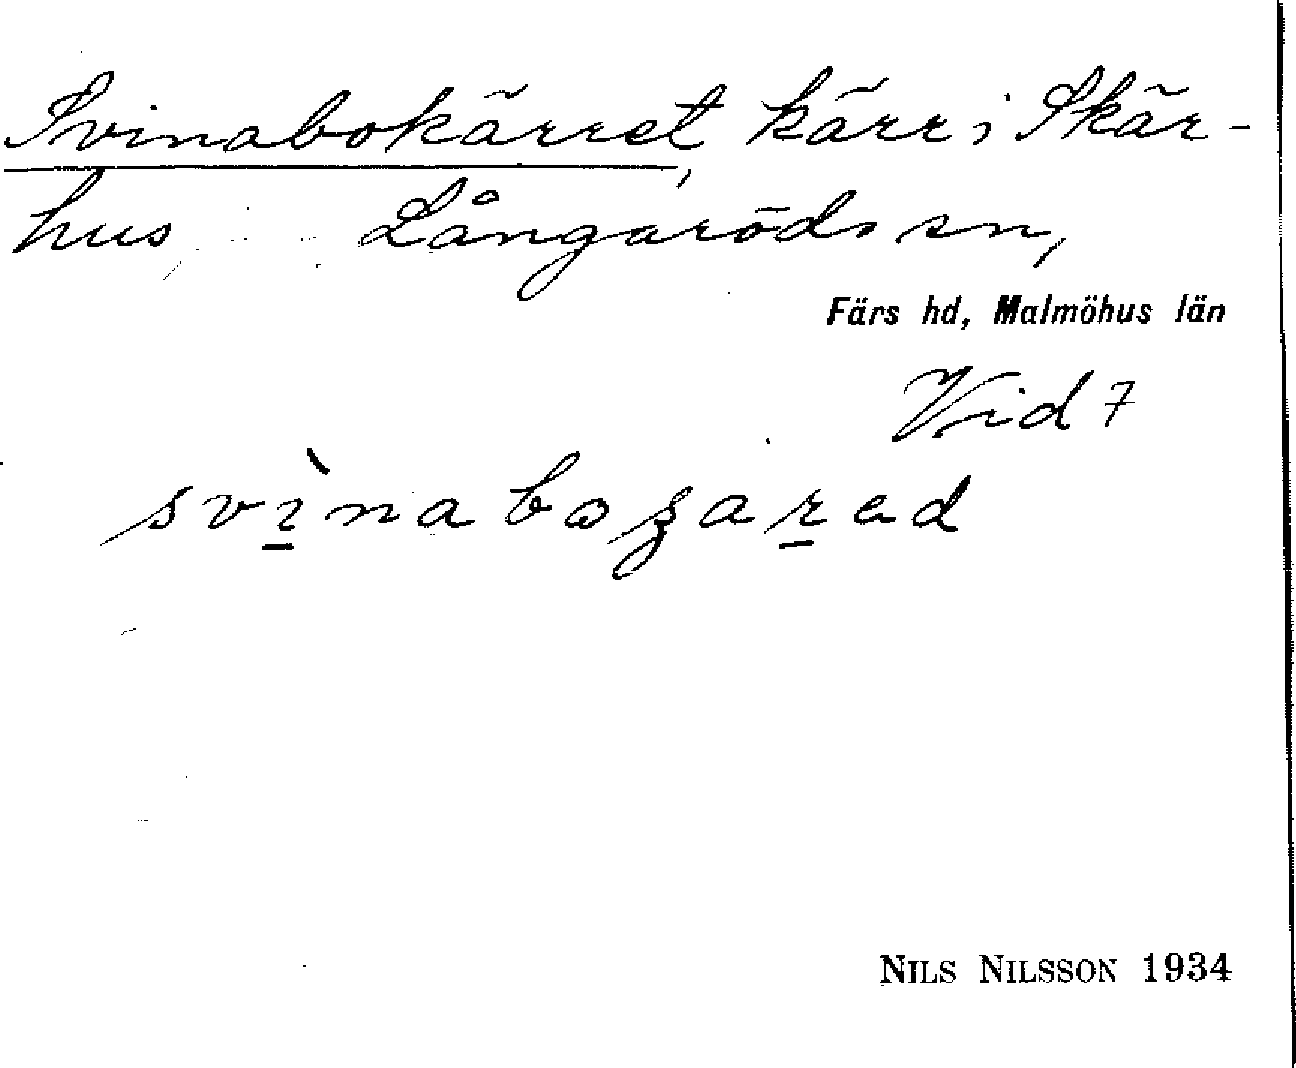 Svinabokärret, kärr i Skär-
hus, Långaröds sn,
Färs hd, Malmöhus län
Vid 7
NILS NILSSON 1934